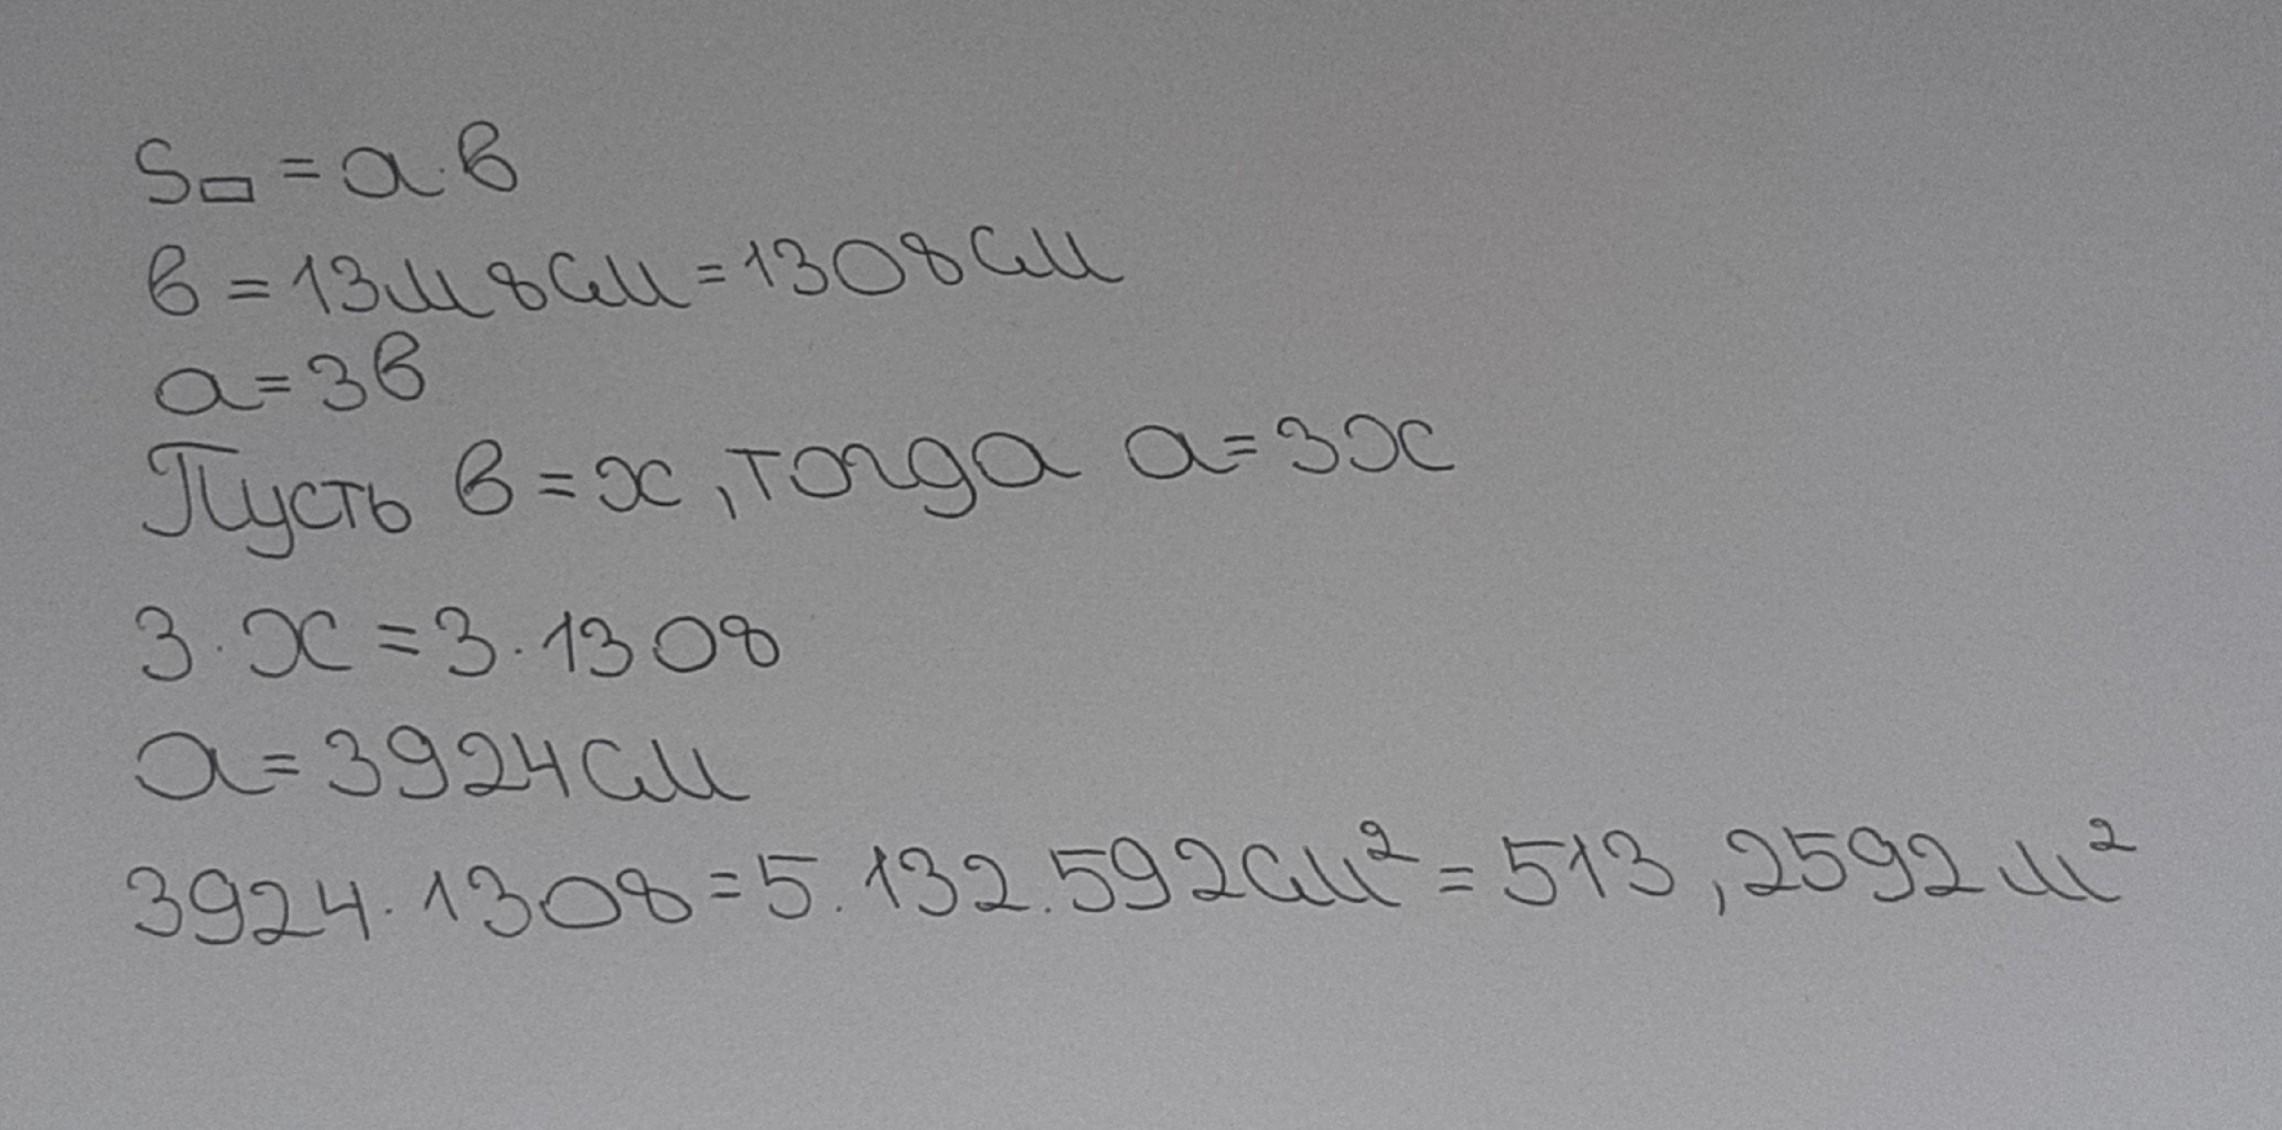 S▭ = a·в
в = 13м 8см = 1308см
a = 3в
Пусть в = x, тогда a = 3x
3·x = 3·1308
a = 3924см
3924·1308 = 5.132.592см² = 513,2592м²